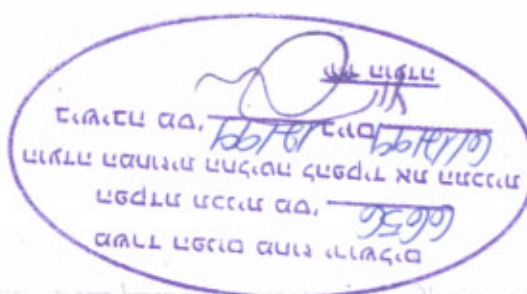 משרד הפנים מחוז ירושלים
הפקדת תכנית מס' 6656
הועדה המחוזית החליטה להפקיד את התכנית
בישיבה מס' 12/99 ביום 6/12/99
הועדה